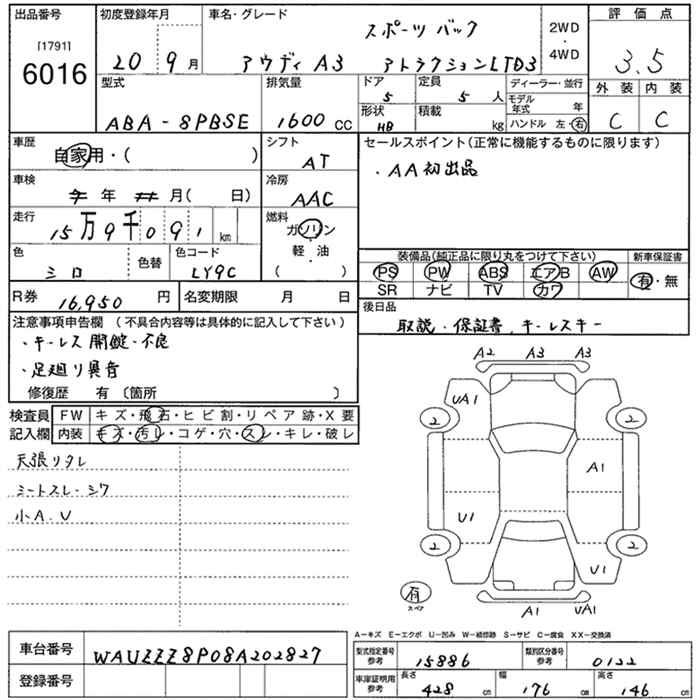 出品番号
[1791]
6016
初度登録年月
20 9月
車名・グレード
スポーツ バック
アウディ A3 アトラクションLTD3
2WD
・
4WD
評価点
3.5
外装 内装
C C
型式
ABA-8PBSE
排気量
1600 cc
ドア 5
定員 5 人
形状 HB
積載 kg
ディーラー・並行
モデル年式 年
ハンドル 左・右
車歴
自家用・( )
シフト
AT
セールスポイント(正常に機能するものに限ります)
・AA初出品
車検
年 月( 日)
冷房
AAC
走行
15万9千091 km
燃料
ガソリン
・
軽・油
( )
色
シロ
色替
色コード
LY9C
装備品(純正品に限り丸をつけて下さい)
PS PW ABS エアB AW
SR ナビ TV カワ
新車保証書
有・無
R券 16,950 円
名変期限 月 日
後日品
取説・保証書、キーレスキー
注意事項申告欄 (不具合内容等は具体的に記入して下さい)
・キーレス開錠・不良
・足廻り異音
修復歴 有〔箇所 〕
検査員記入欄
FW キズ・飛石・ヒビ割・リペア跡・X要
内装 キズ・汚レ・コゲ・穴・スレ・キレ・破レ
天張りタレ
シートスレ・シワ
小A.U
A2 A3 A3
UA1
2 2
A1
U1
2 2
U1
有
スペア
A1 UA1
A-キズ E-エクボ U-凹み W-補修跡 S-サビ C-腐食 XX-交換済
車台番号 WAUZZZ8P08A202827
登録番号
型式指定番号 参考 15886
類別区分番号 参考 0122
車庫証明用 参考
長さ 428 cm
幅 176 cm
高さ 146 cm